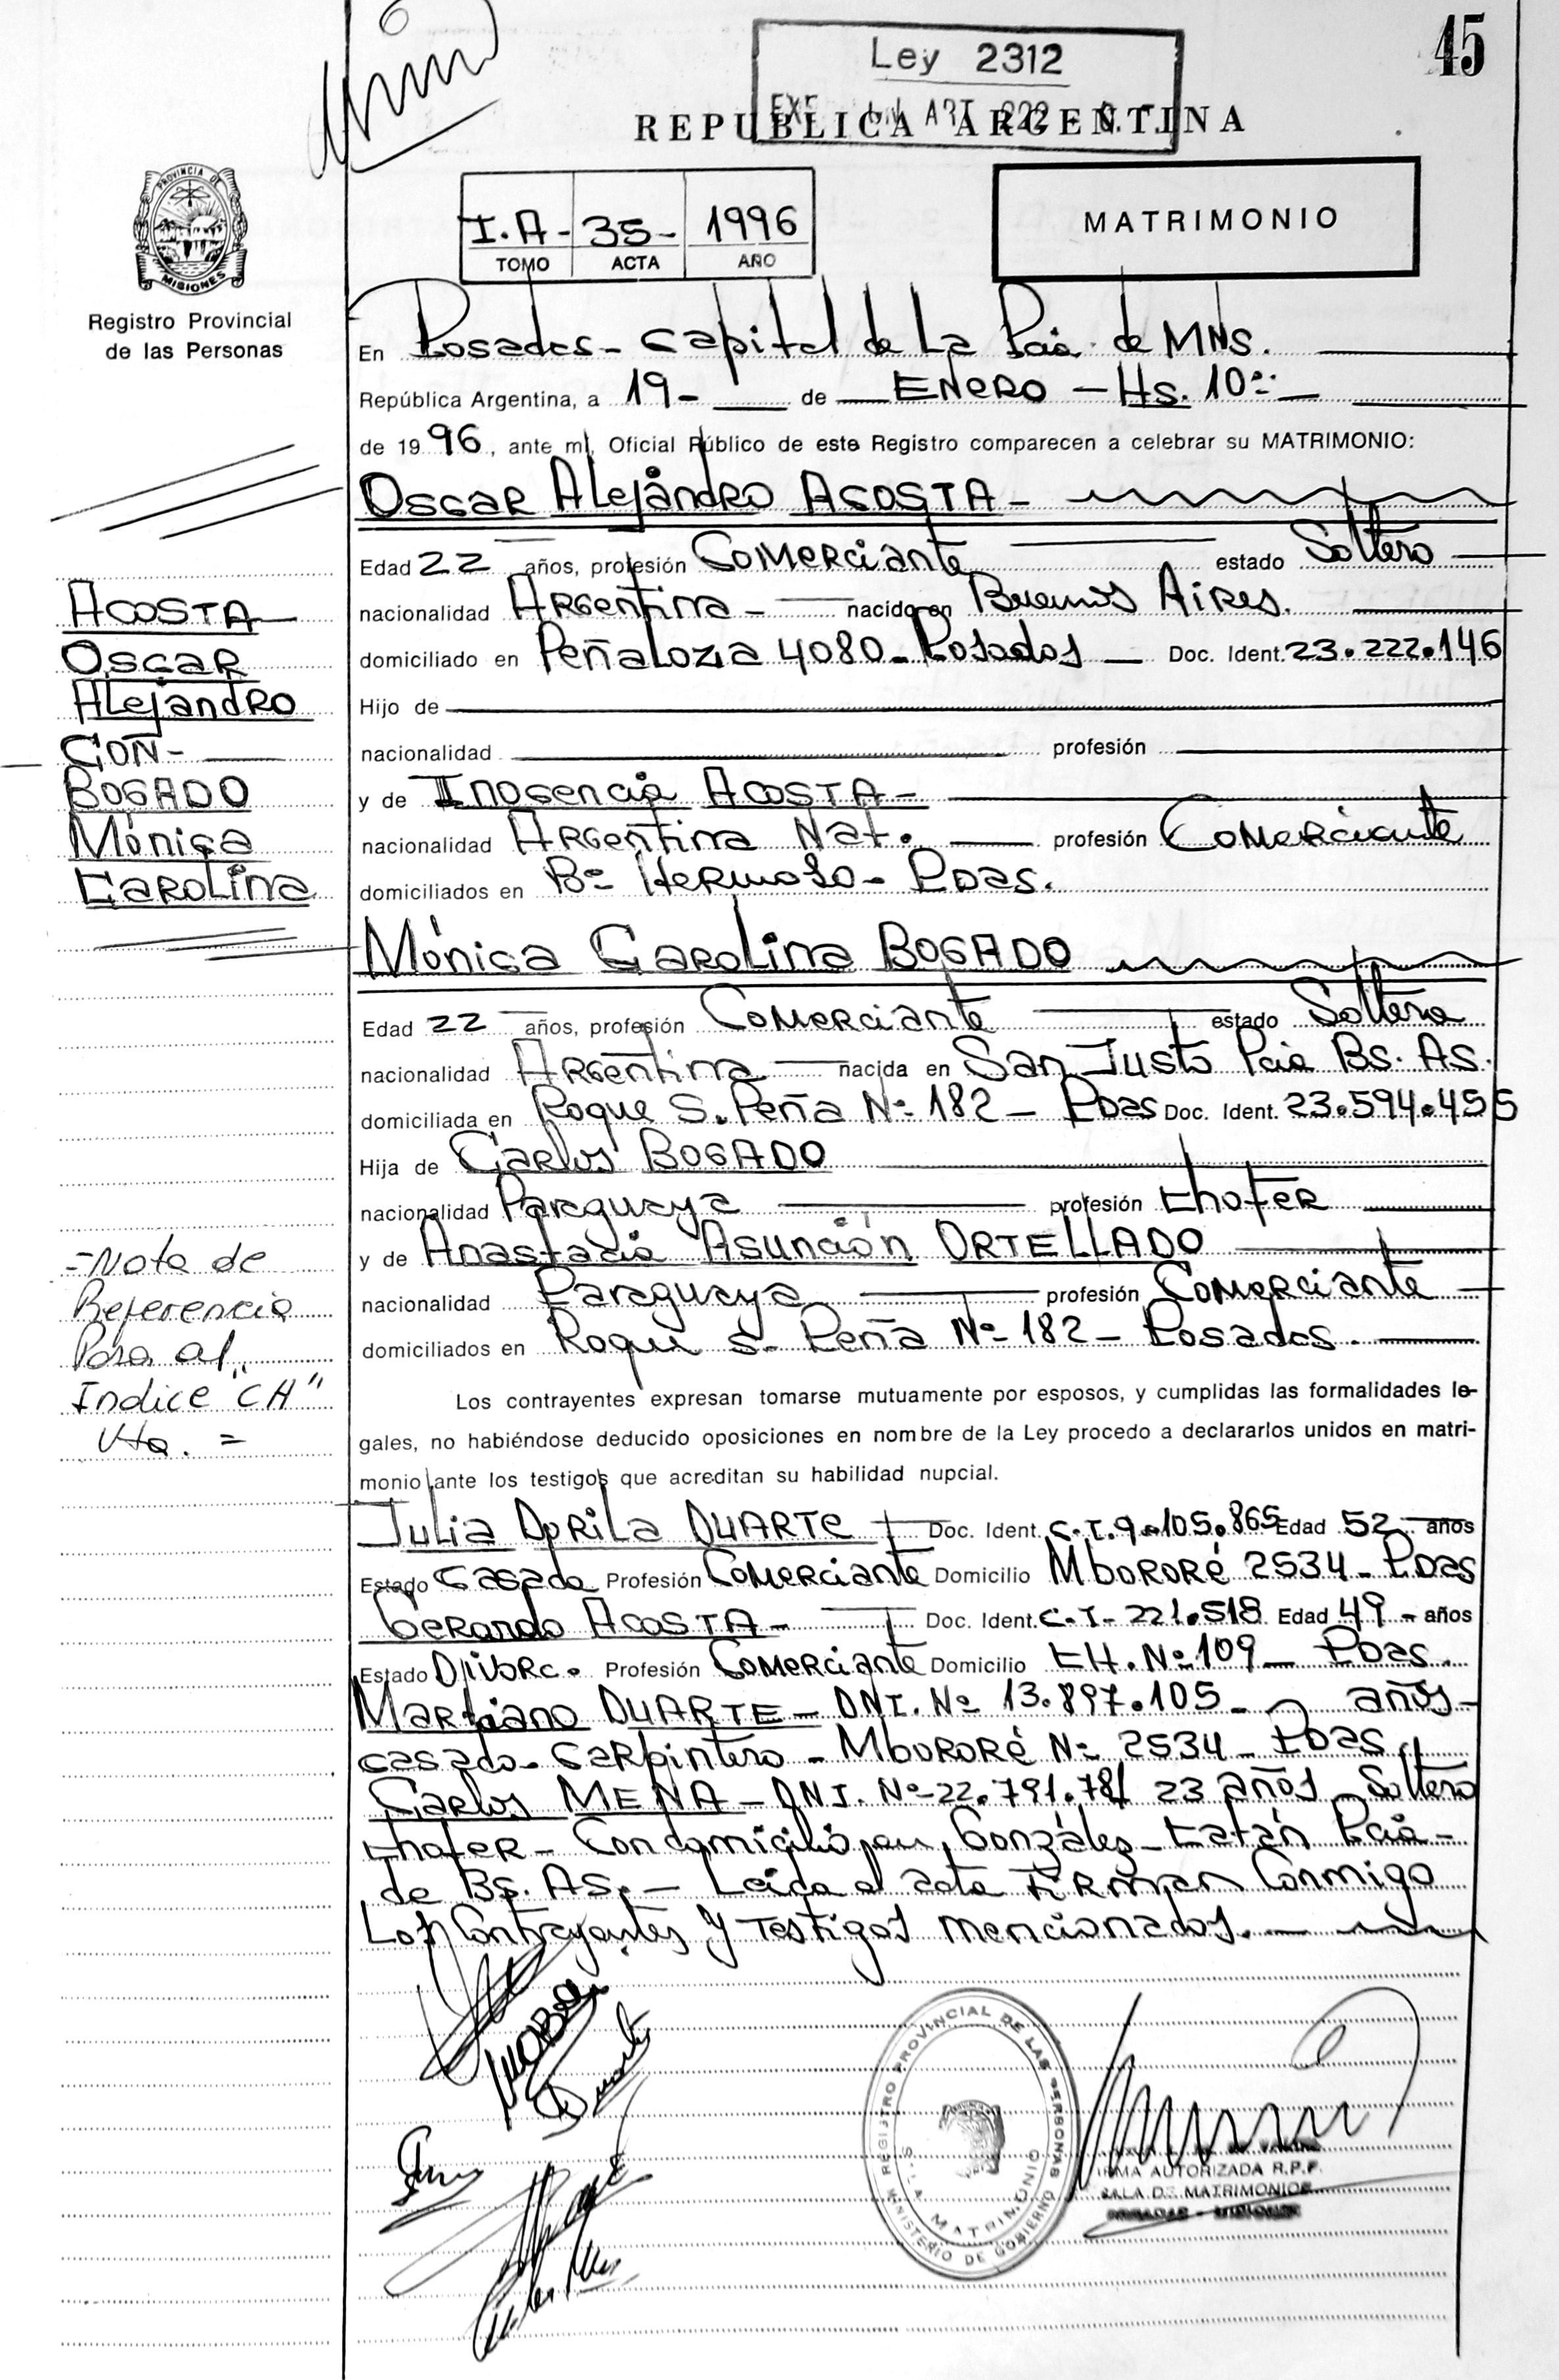 45
Ley 2312
REPUBLICA ARGENTINA
I.A - 35 - 1996
TOMO ACTA AÑO
MATRIMONIO
PROVINCIA DE MISIONES
Registro Provincial
de las Personas
En Posadas - Capital de La Pcia. de MNS.
República Argentina, a 19 - de ENERO - Hs. 10
de 1996, ante mí, Oficial Público de este Registro comparecen a celebrar su MATRIMONIO:
OSCAR ALEJANDRO ACOSTA -
Edad 22 años, profesión Comerciante estado Soltero
nacionalidad Argentina - nacido en Buenos Aires.
domiciliado en Peñaloza 4080 - Posadas - Doc. Ident. 23.222.146
Hijo de
nacionalidad profesión
y de Inosencia ACOSTA -
nacionalidad Argentina Nat. profesión Comerciante
domiciliados en Bº Hermoso - Pdas.
Mónica Carolina BOGADO
Edad 22 años, profesión Comerciante estado Soltera
nacionalidad Argentina nacida en San Justo Pcia Bs. As.
domiciliada en Roque S. Peña Nº 182 - Pdas Doc. Ident. 23.594.455
Hija de Carlos BOGADO
nacionalidad Paraguaya profesión Chofer
y de Anastacia Asunción ORTELLADO
nacionalidad Paraguaya profesión Comerciante
domiciliados en Roque S. Peña Nº 182 - Posadas.
Los contrayentes expresan tomarse mutuamente por esposos, y cumplidas las formalidades le-
gales, no habiéndose deducido oposiciones en nombre de la Ley procedo a declararlos unidos en matri-
monio ante los testigos que acreditan su habilidad nupcial.
Julia Dorila DUARTE Doc. Ident. C.I. 9.105.865 Edad 52 años
Estado Casada Profesión Comerciante Domicilio Mbororé 2534 - Pdas
Gerardo ACOSTA - Doc. Ident. C.I - 221.518 Edad 49 - años
Estado Divorc. Profesión Comerciante Domicilio CH. Nº 109 - Pdas.
Marciano DUARTE - DNI. Nº 13.897.105 - años -
casado - carpintero - Mbororé Nº 2534 - Pdas.
Carlos MENA - DNI. Nº 22.791.781 23 años Soltero
Chofer - Con domicilio en González - Catán Pcia -
de Bs. As. - Leída el acta Firman Conmigo
Los Contrayentes y Testigos mencionados. -
ACOSTA
OSCAR
ALEJANDRO
CON -
BOGADO
Mónica
Carolina
= Nota de
Referencia
Para al
Indice "CH"
Vta. =
Duarte
REGISTRO PROVINCIAL DE LAS PERSONAS
MINISTERIO DE GOBIERNO
SALA MATRIMONIO
FIRMA AUTORIZADA R.P.P.
SALA DE MATRIMONIOS
POSADAS - MISIONES